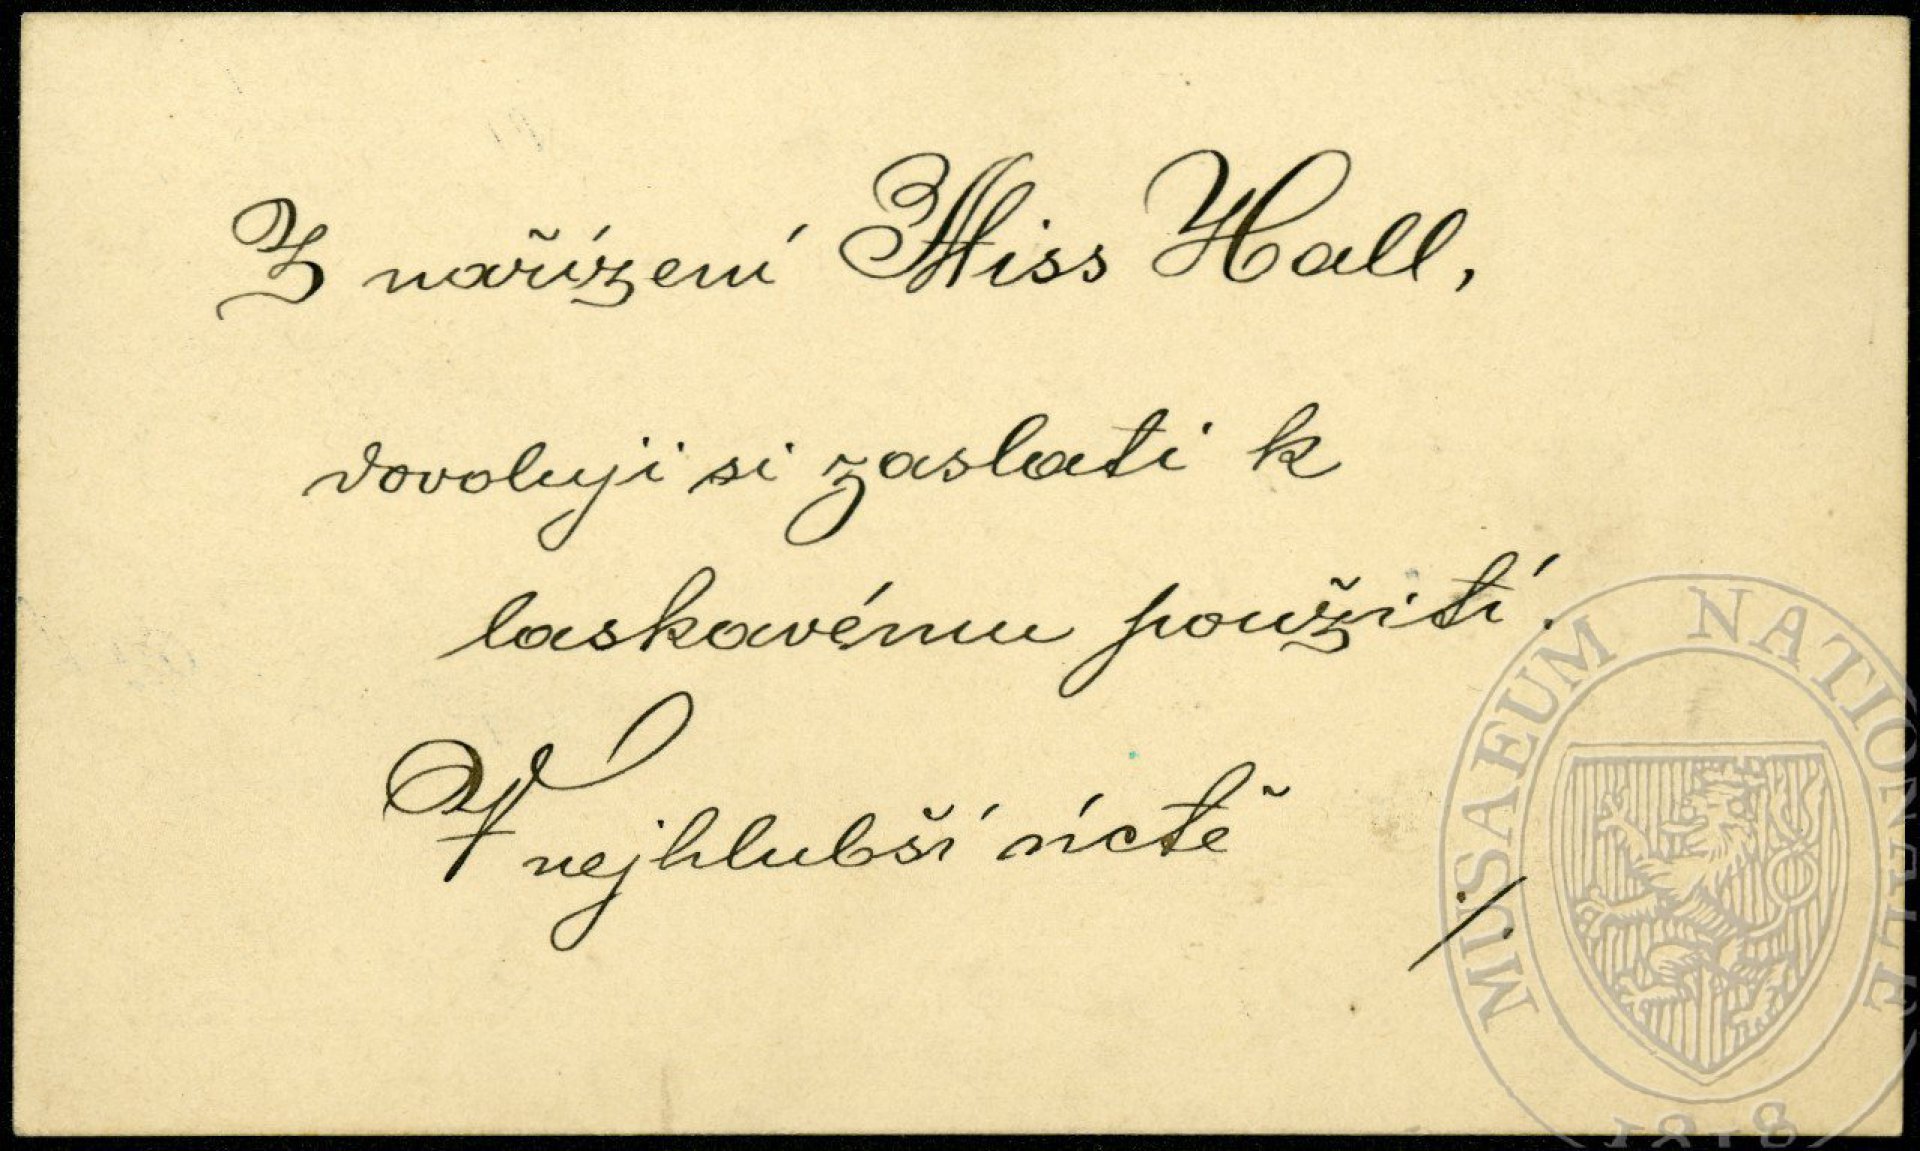 Z nařízení Miss Hall,
dovoluji si zaslati k
laskavému použití.
V nejhlubší úctě
./.
MUSAEUM NATIONALE
1818